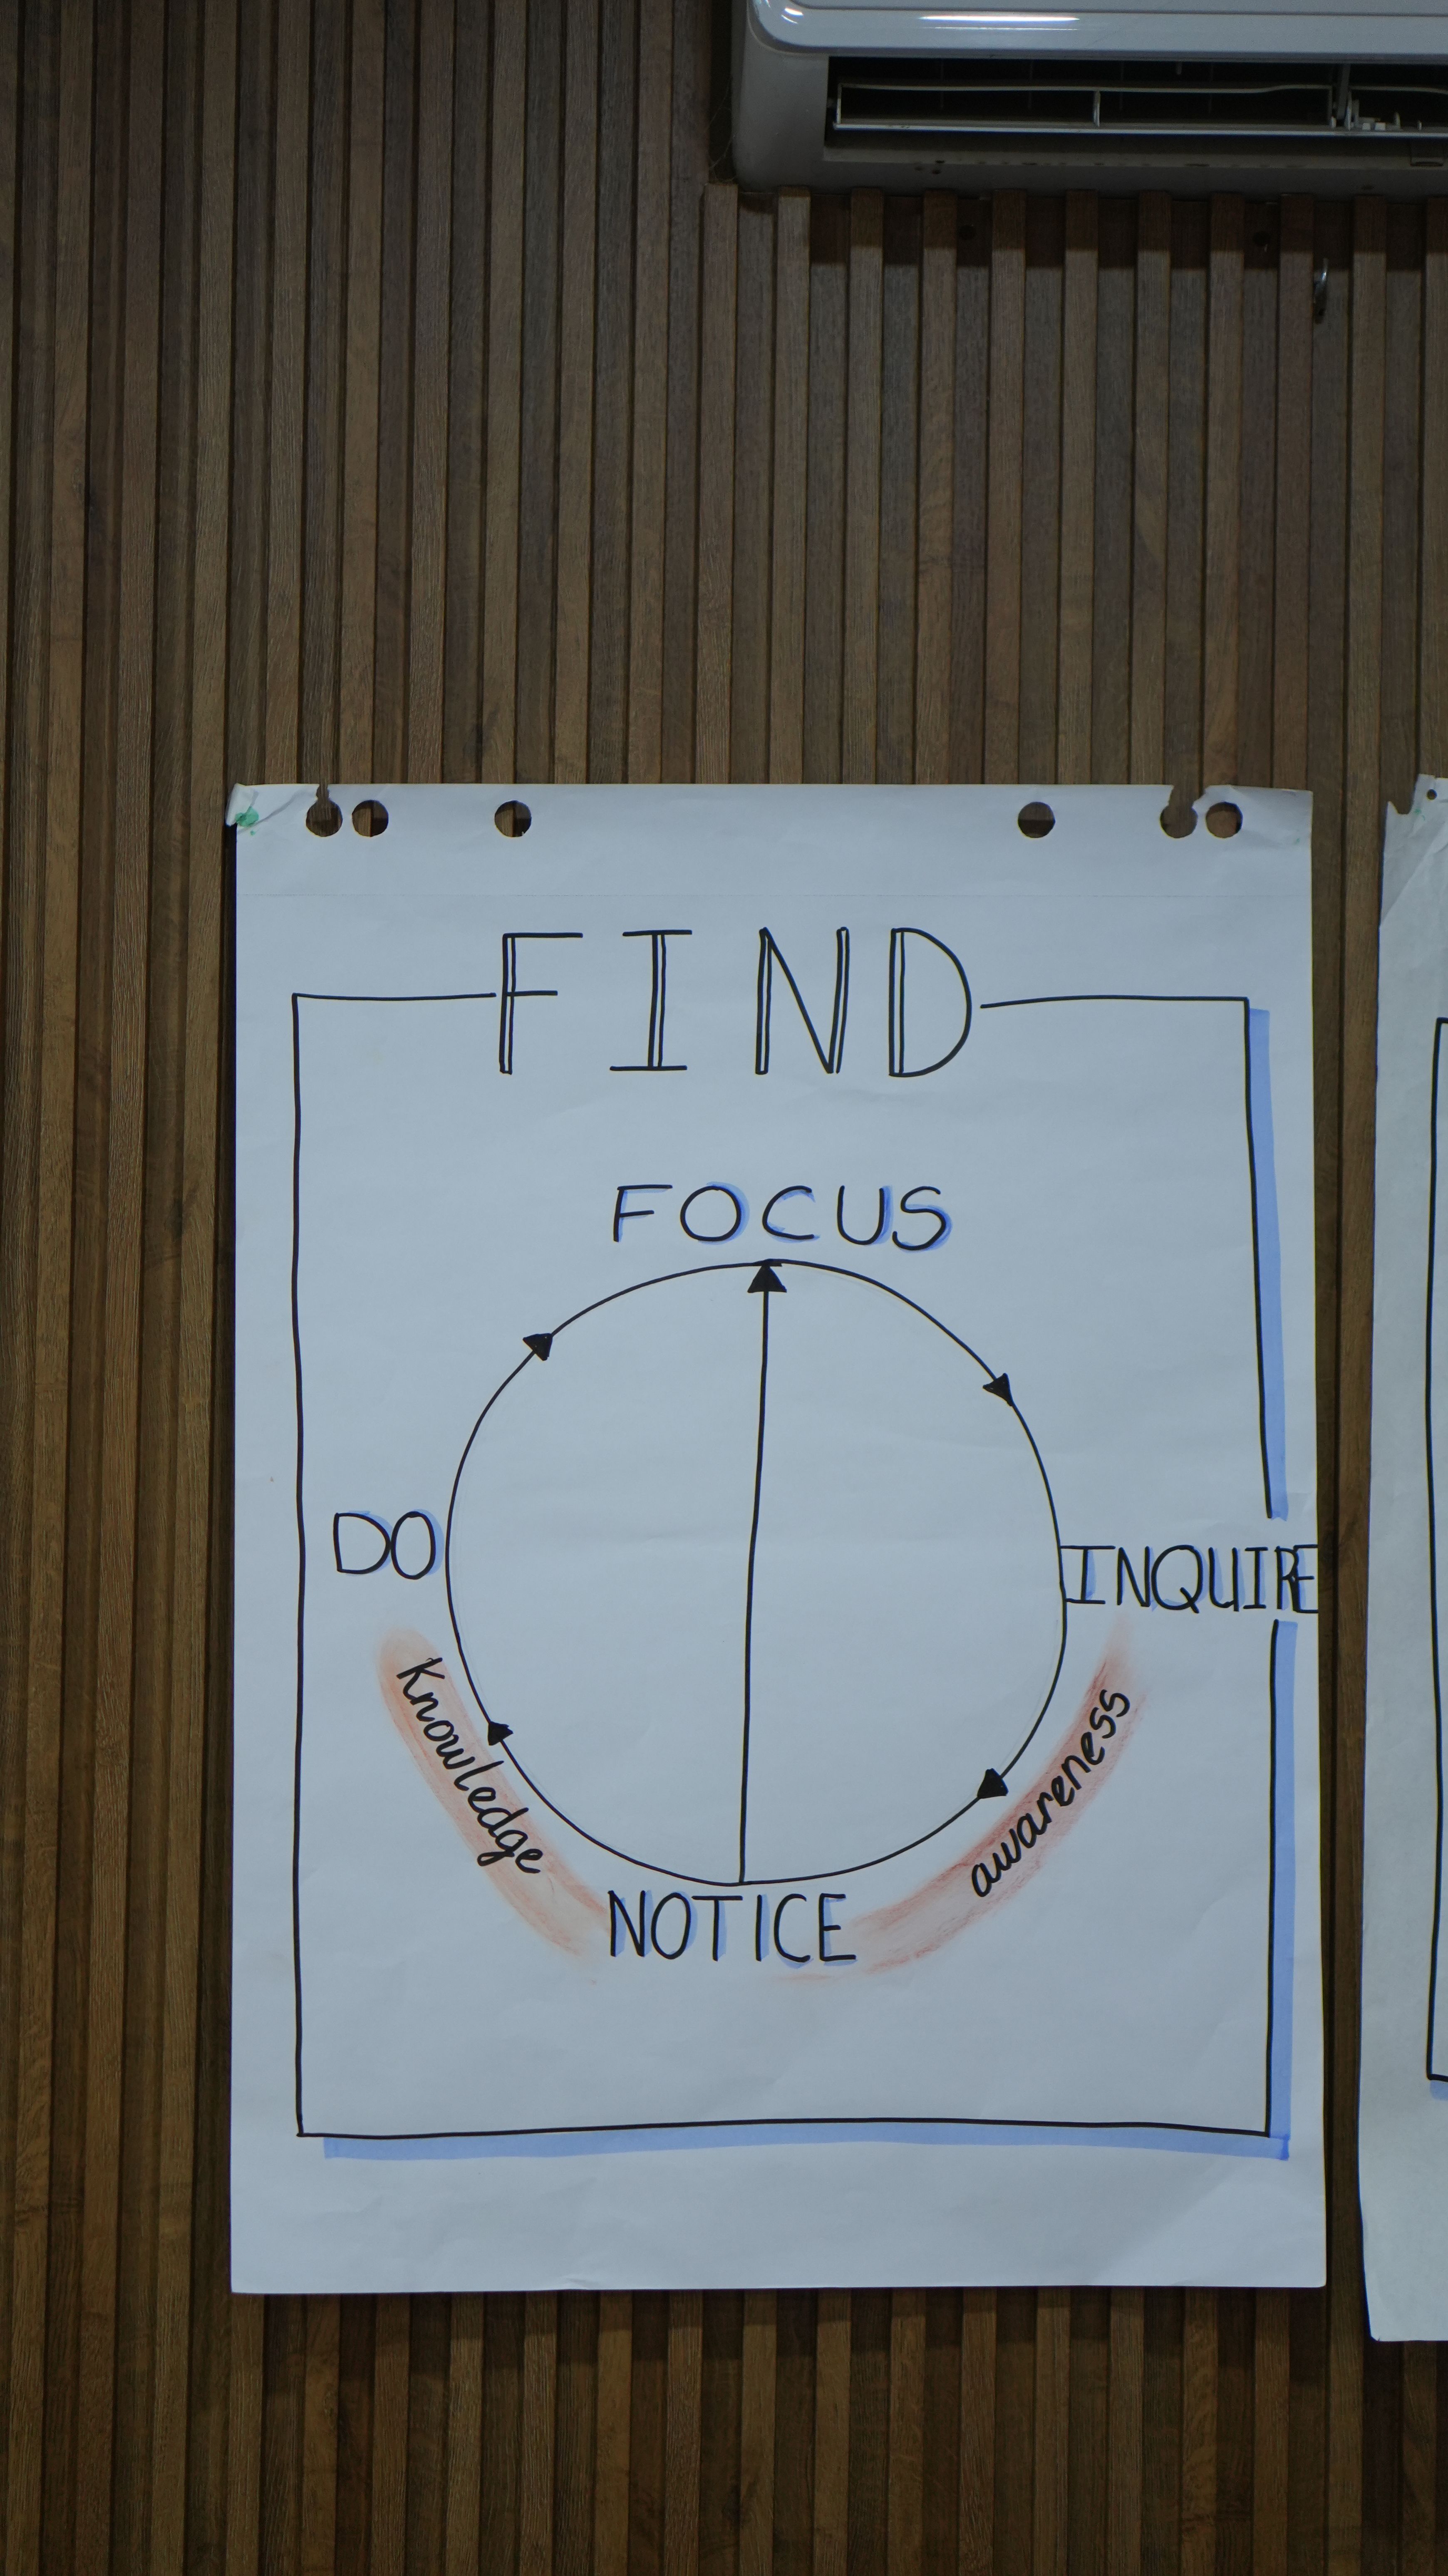 FIND
FOCUS
DO
INQUIRE
Knowledge
awareness
NOTICE